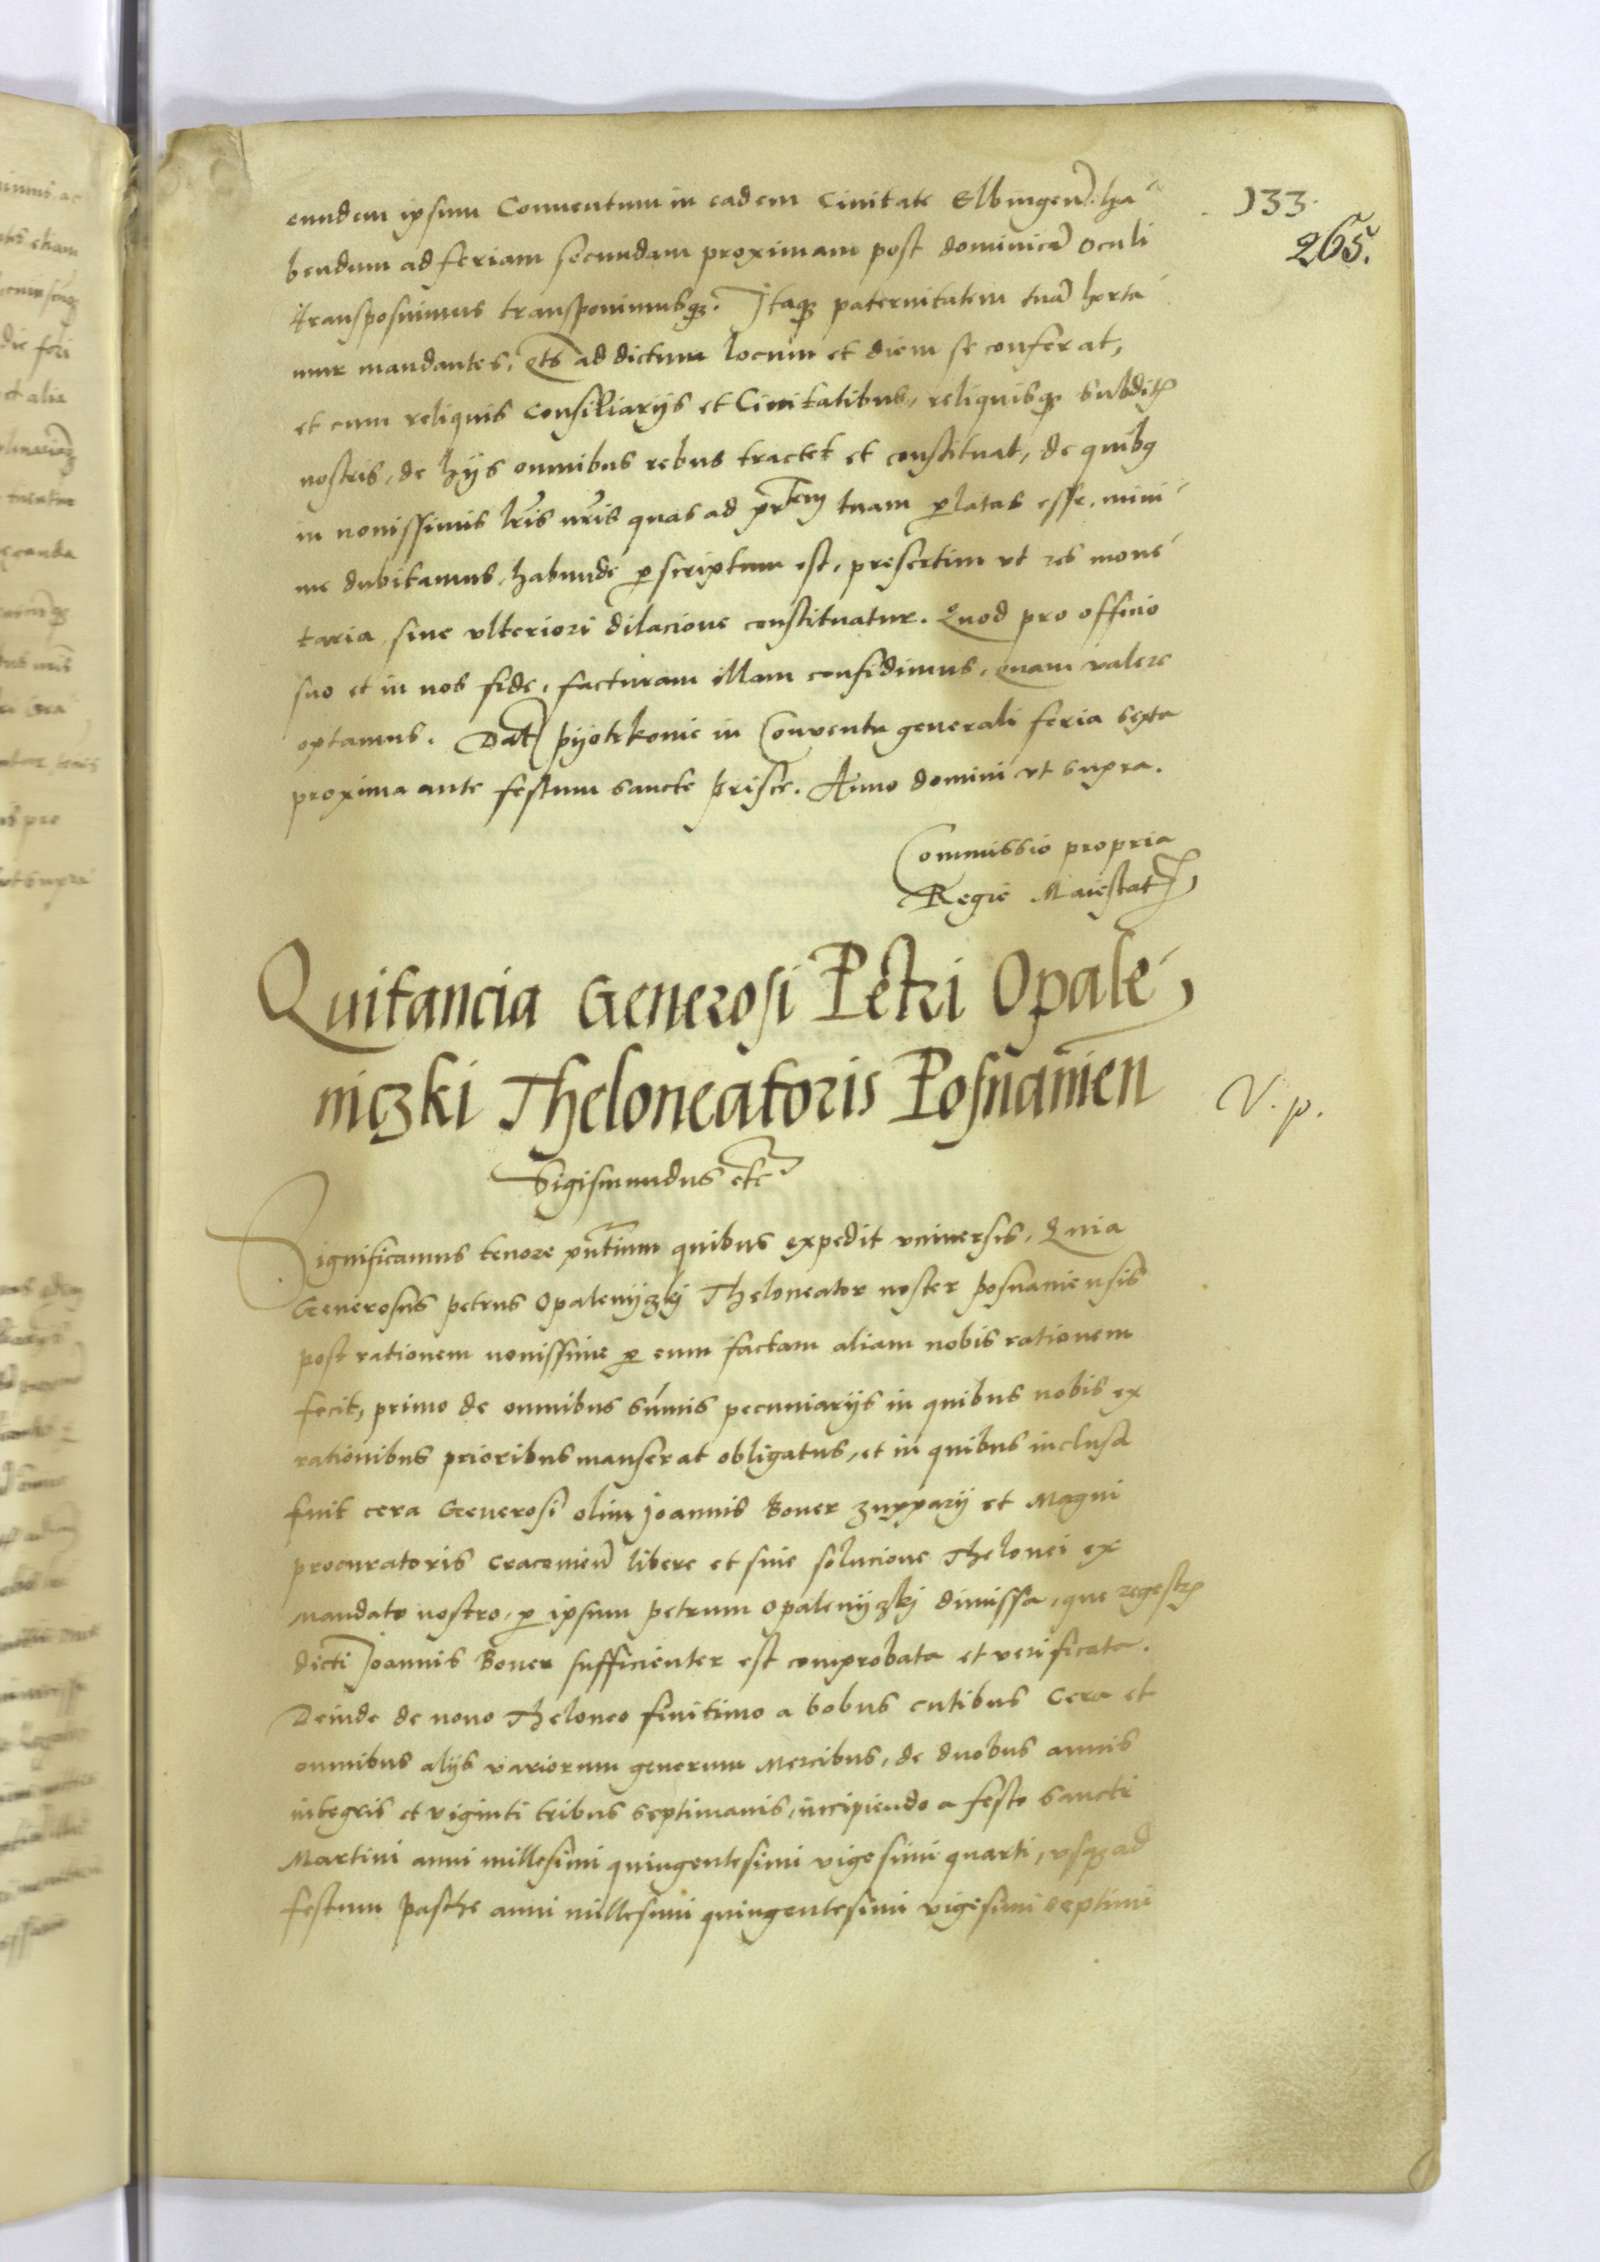 133.
265.
eundem ipsum Conuentum in eadem Ciuitate Elbingen̄. ha-
bendum ad feriam secundam proximam post dominicā Oculi
transposuimus transponimusq̧. Itaq̧ paternitatem tuā horta-
mur mandantes, q̄ts ad dictum locum et diem se conferat,
et cum reliquis Consiliarijs et Ciuitatibus, reliquisq̧ subditꝭ
nostris, de hijs omnibus rebus tractet et constituat, de quibꝰ
in nouissimis lr̄is nr̄is quas ad pr̄tem tuam ꝑlatas esse, mini-
me dubitamus, habunde ꝑscriptum est, presertim vt res mone-
taria sine vlteriori dilacione constituatur. Quod pro officio
suo et in nos fide, facturam illam confidimus, quam valere
optamus. Dat̄ Pyotrkouie in Conuentu generali feria sexta
proxima ante festum sancte Prisce. Anno domini vt supra.
Commissio propria
Regie Maiestatꝭ
Quitancia Generosi Petri Opale-
niczki Theloneatoris Posnanien
V. p.
Sigismundus etc̄
Significamus tenore pn̄tium quibus expedit vniuersis, Quia
Generosus Petrus Opalenyzkj Theloneator noster Posnaniensis
post rationem nouissime ꝑ eum factam aliam nobis rationem
fecit, primo de omnibus sum̄is pecuniarijs in quibus nobis ex
rationibus prioribus manserat obligatus, et in quibus inclusa
fuit cera Generosi olim Joannis Boner zupparij et Magni
procuratoris Cracouien̄ libere et sine solucione Thelonei ex
mandato nostro, ꝑ ipsum Petrum Opalenyzkj dimissa, que regestꝭ
dicti Joannis Boner sufficienter est comprobata et verificata.
Deinde de nouo Theloneo finitimo a bobus cutibus Cera et
omnibus alijs variorum generum Mercibus, de duobus annis
integris et viginti tribus septimanis, incipiendo a festo Sancti
Martini anni millesimi quingentesimi vigesimi quarti, vsq̧ ad
festum Pasche anni millesimi quingentesimi vigesimi septimi